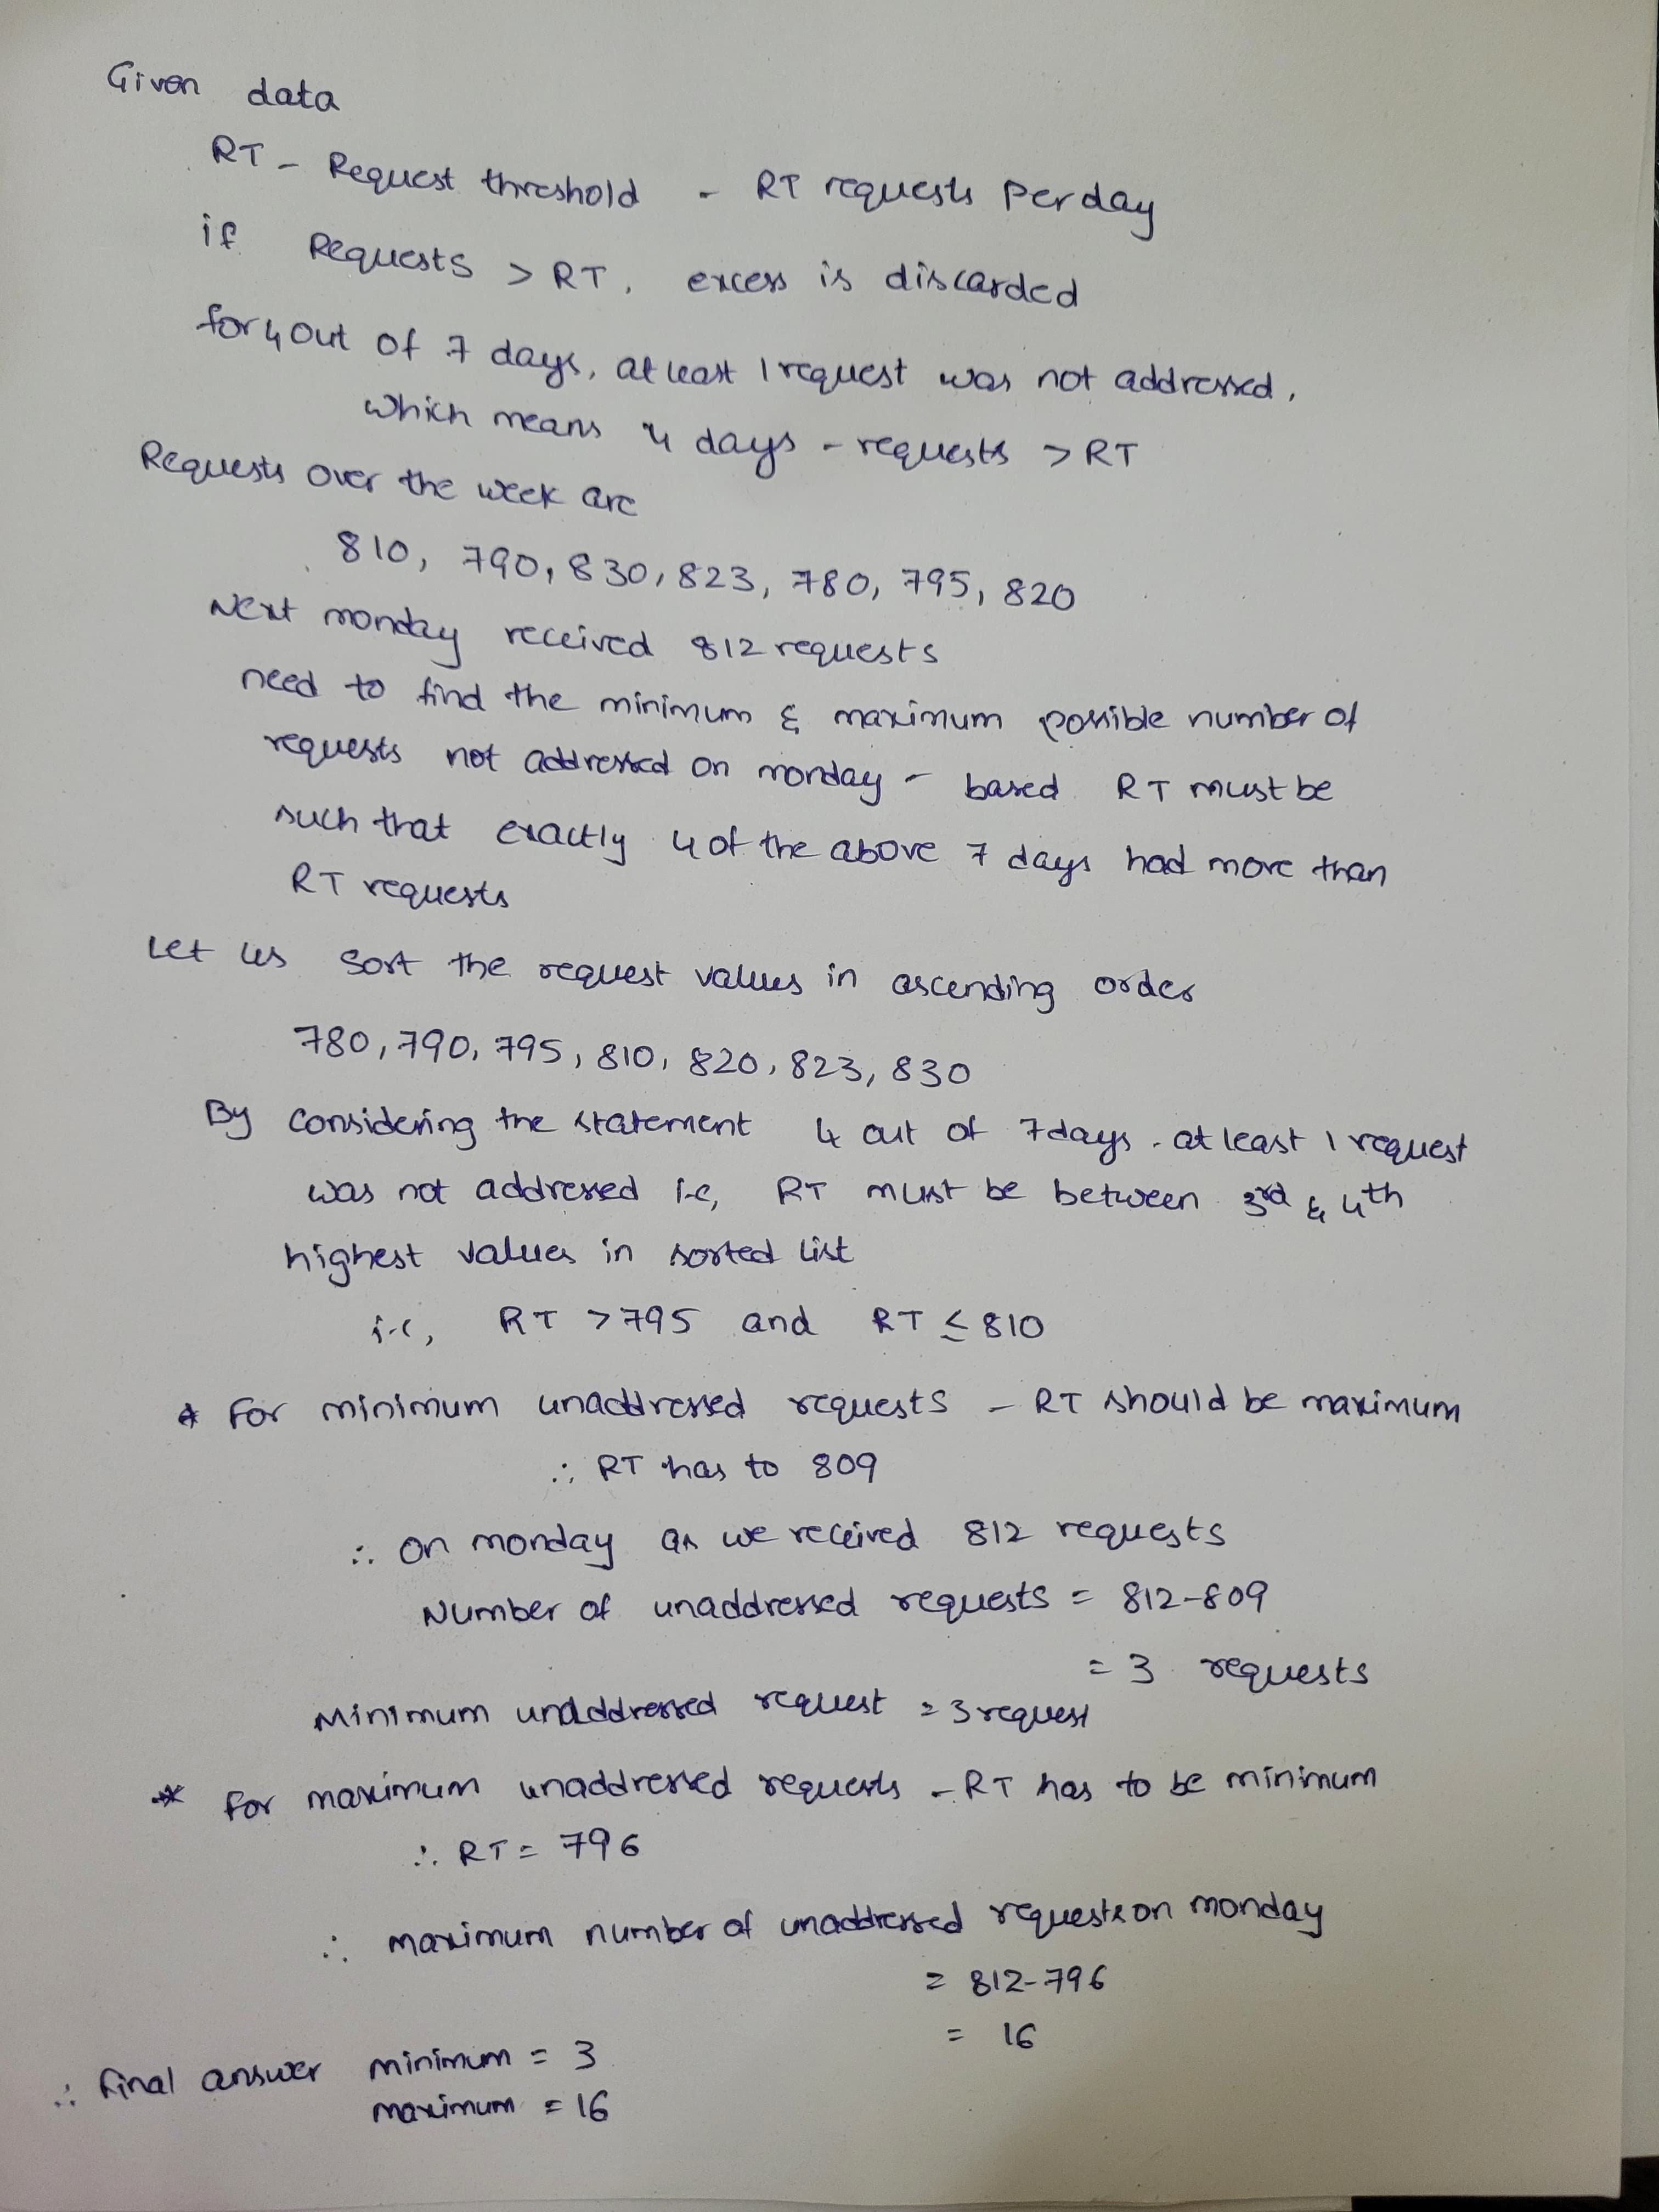 Given data
RT - Request threshold - RT requests Per day
if Requests > RT, excess is discarded
for 4 out of 7 days, at least 1 request was not addressed,
which means 4 days - requests > RT
Requests over the week are
810, 790, 830, 823, 780, 795, 820
Next monday received 812 requests
need to find the minimum & maximum possible number of
requests not addressed on monday - based RT must be
such that exactly 4 of the above 7 days had more than
RT requests
Let us sort the request values in ascending order
780, 790, 795, 810, 820, 823, 830
By considering the statement 4 out of 7 days - at least 1 request
was not addressed i.e, RT must be between 3rd & 4th
highest values in sorted list
i.e, RT > 795 and RT ≤ 810
* For minimum unaddressed requests - RT should be maximum
∴ RT has to 809
∴ on monday as we received 812 requests
Number of unaddressed requests = 812-809
= 3 requests
Minimum unaddressed request = 3 request
* for maximum unaddressed requests - RT has to be minimum
∴ RT = 796
∴ maximum number of unaddressed requests on monday
= 812-796
= 16
∴ final answer minimum = 3
maximum = 16